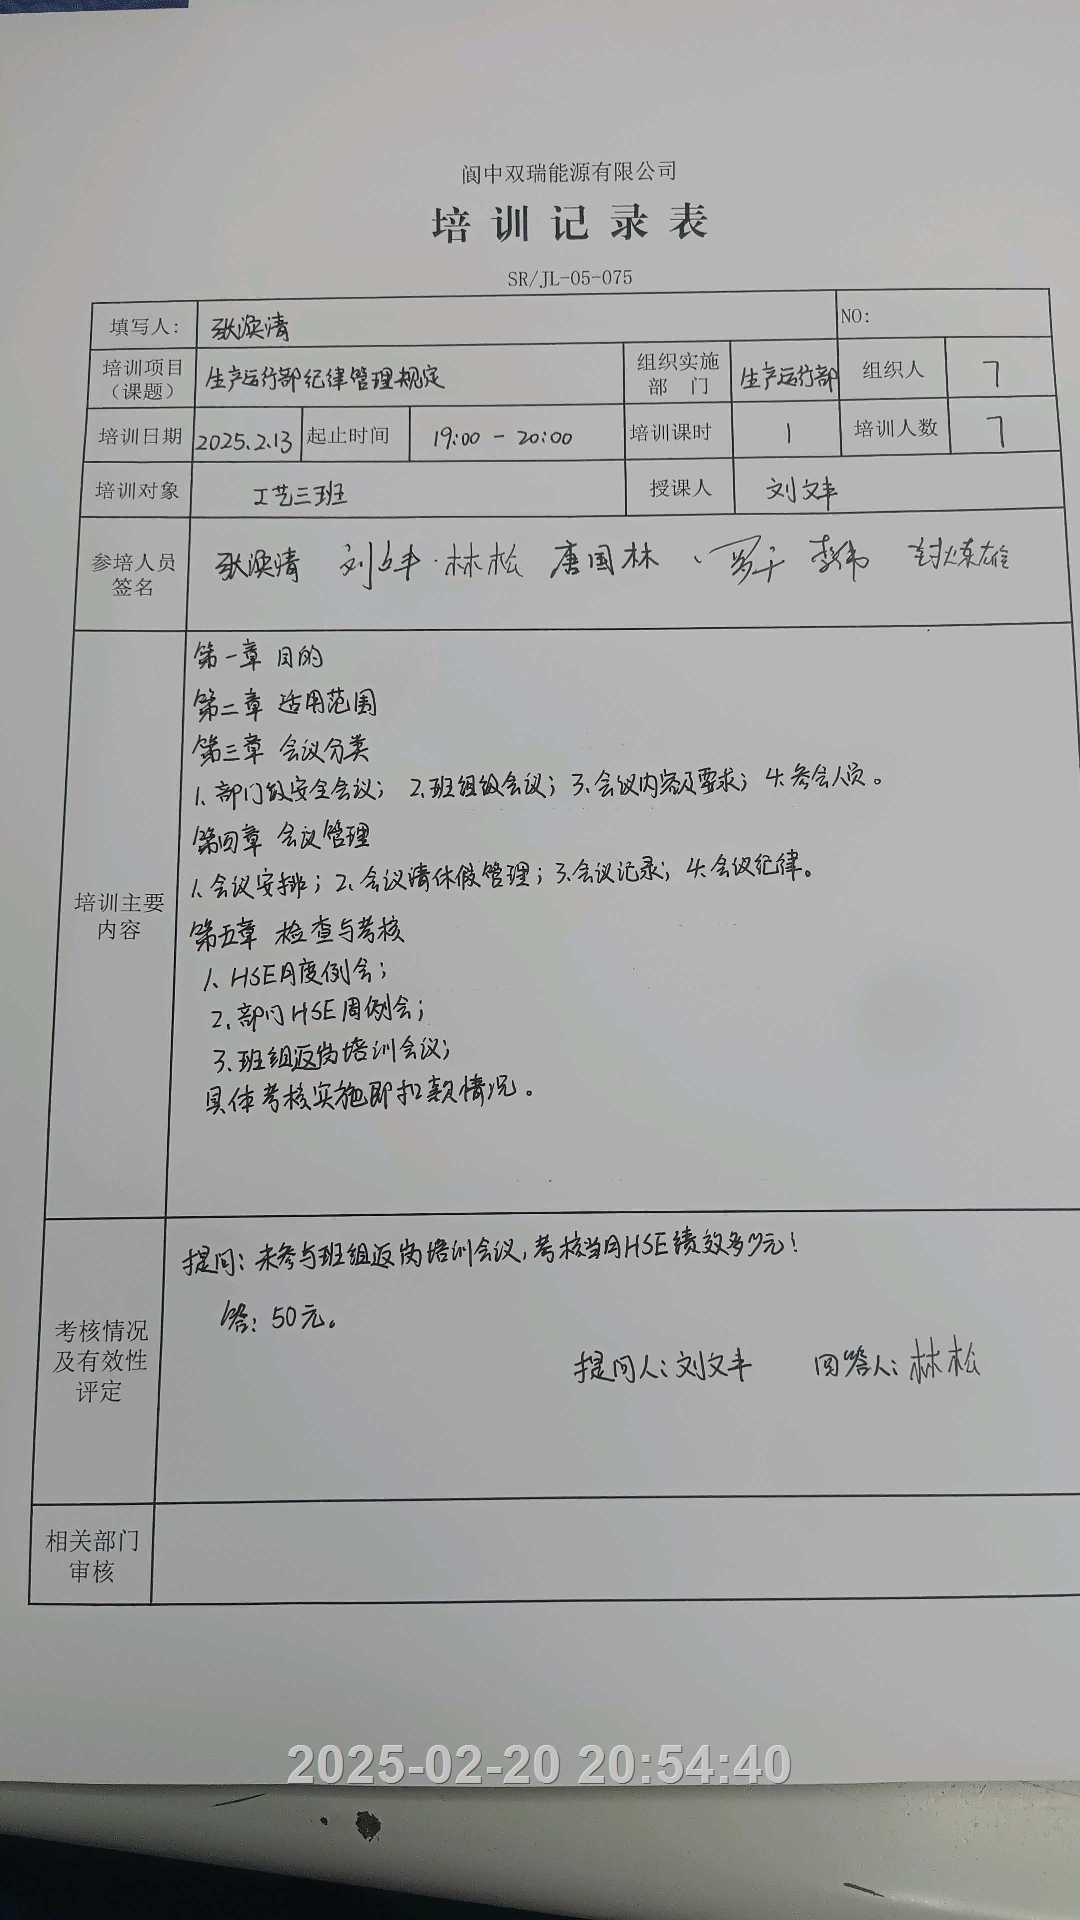 阆中双瑞能源有限公司
培训记录表
SR/JL-05-075
填写人: 张涣清 NO:
培训项目（课题） 生产运行部纪律管理规定 组织实施部门 生产运行部 组织人 7
培训日期 2025.2.13 起止时间 19:00 - 20:00 培训课时 1 培训人数 7
培训对象 工艺三班 授课人 刘文丰
参培人员签名 张涣清 刘文丰 林松 唐国林 罗干 李伟
培训主要内容
第一章 目的
第二章 适用范围
第三章 会议分类
1、部门级安全会议；2、班组级会议；3、会议内容及要求；4、参会人员。
第四章 会议管理
1、会议安排；2、会议请休假管理；3、会议记录；4、会议纪律。
第五章 检查与考核
1、HSE月度例会；
2、部门HSE周例会；
3、班组返岗培训会议；
具体考核实施即扣款情况。
考核情况及有效性评定
提问：未参与班组返岗培训会议，考核当月HSE绩效多少元！
答：50元。
提问人：刘文丰 回答人：林松
相关部门审核
2025-02-20 20:54:40